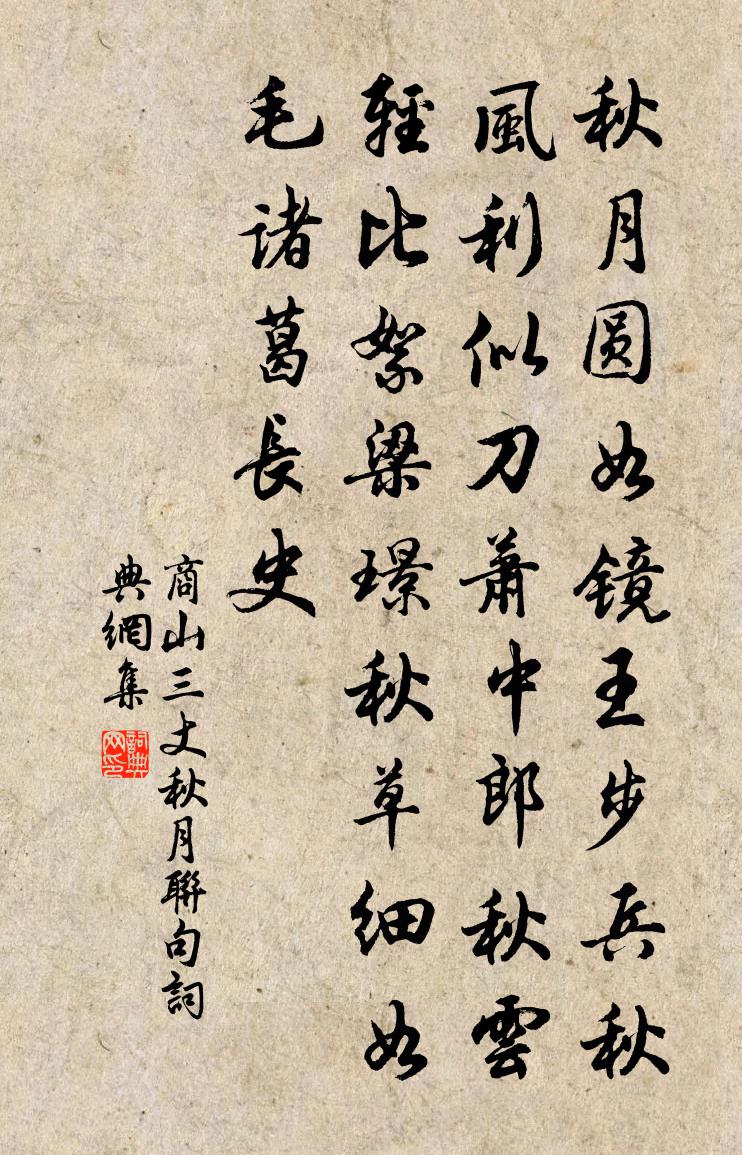 秋月圆如镜王步兵秋
風利似刀萧中郎秋雲
輕比絮梁璟秋草细如
毛诸葛長史
商山三丈秋月聯句詞
典網集
詞典网印